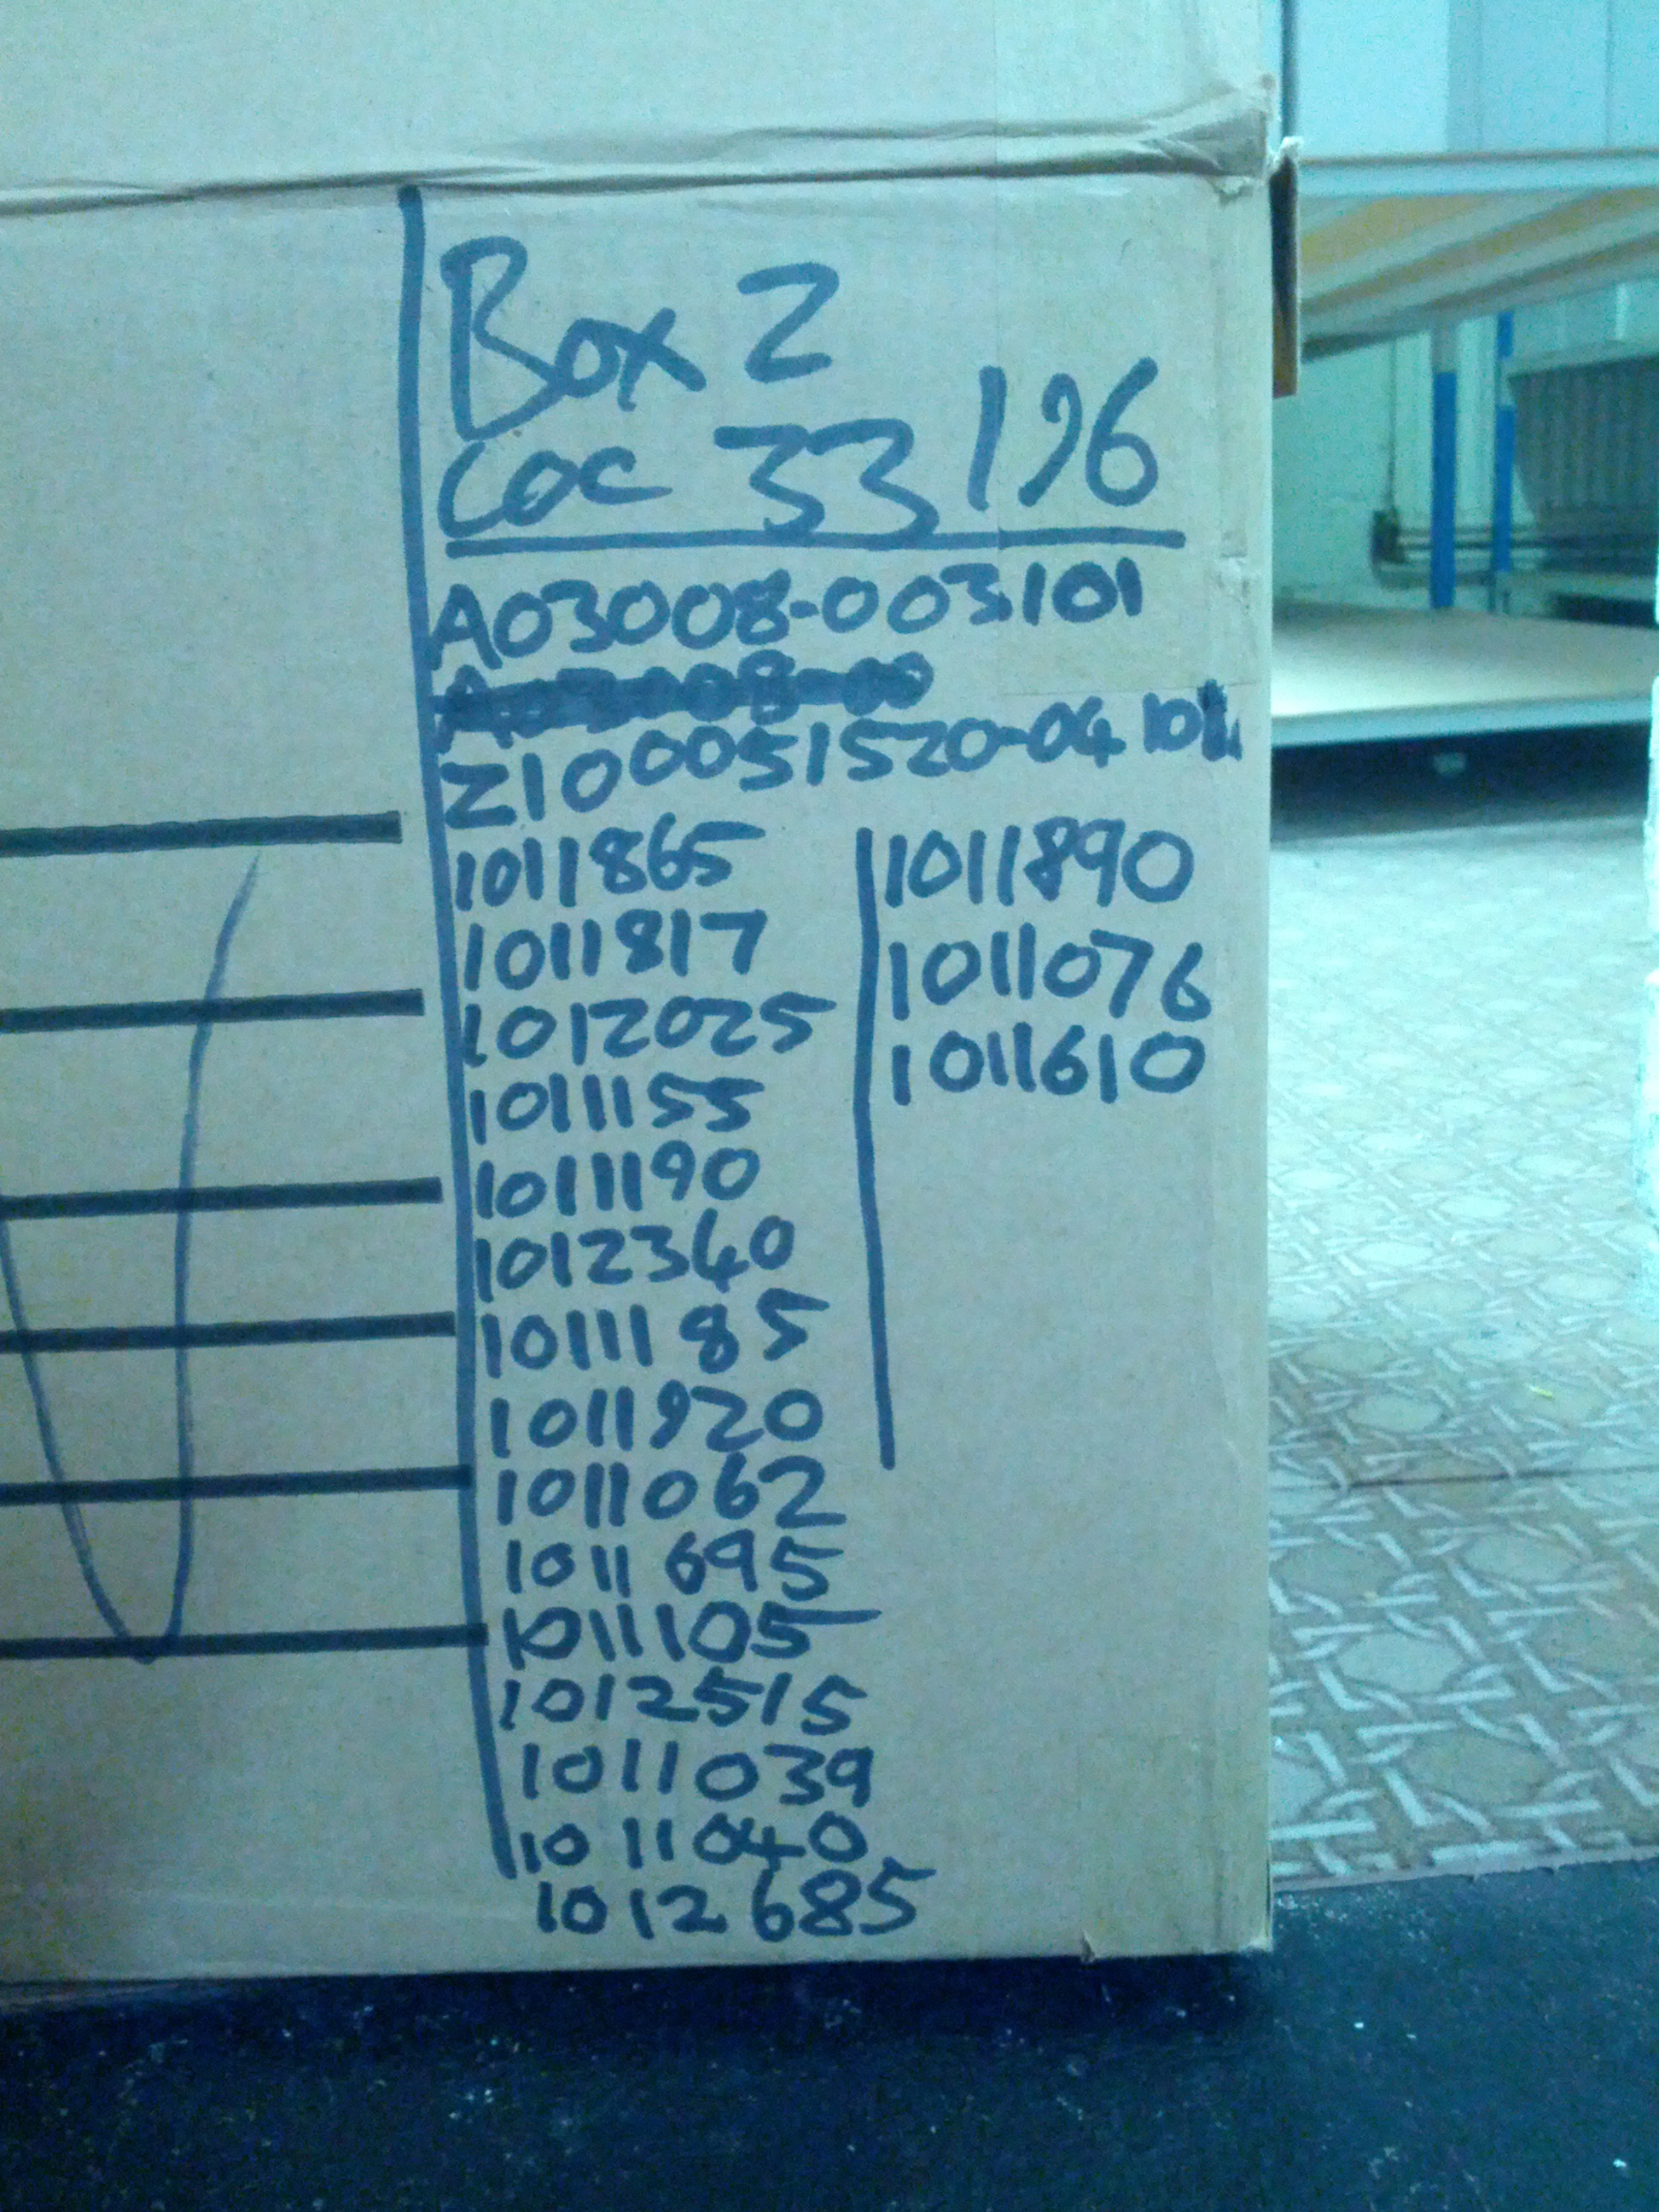 Box 2
COC 33196
A03008-003101
Z100051520-04
1011865
1011817
1012025
1011155
1011190
1012340
1011185
1011920
1011062
1011695
1011105
1012515
1011039
1011040
1012685
1011890
1011076
1011610